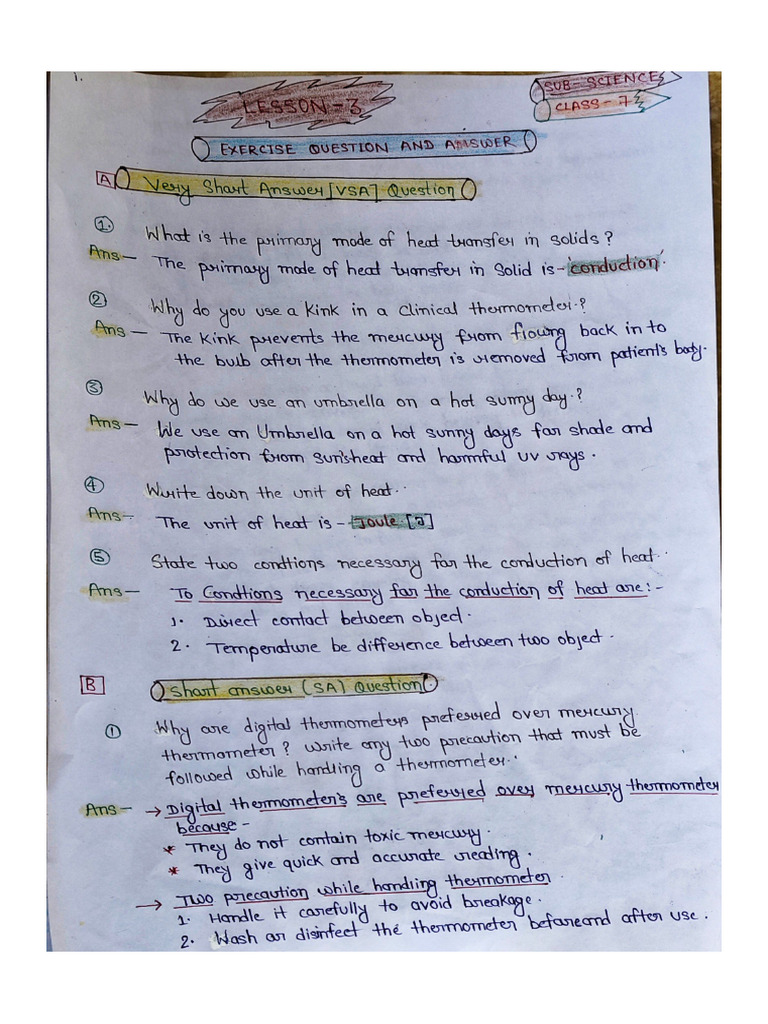 1.
LESSON-3
SUB- SCIENCE
CLASS- 7
EXERCISE QUESTION AND ANSWER
A Very Short Answer [VSA] Question
1. What is the primary mode of heat transfer in solids?
Ans- The primary mode of heat transfer in Solid is- 'conduction'.
2 Why do you use a Kink in a Clinical thermometer.?
Ans- The Kink prevents the mercury from flowing back in to
the bulb after the thermometer is removed from patient's body.
3 Why do we use an umbrella on a hot sunny day.?
Ans- We use an Umbrella on a hot sunny days for shade and
protection from sun'sheat and harmful UV rays.
4 Write down the unit of heat.
Ans- The unit of heat is- Joule [J]
5 State two condtions necessary for the conduction of heat.
Ans- To Condtions necessary for the conduction of heat are:-
1. Direct contact between object.
2. Temperature be difference between two object.
B Short answer (SA) Question
1 Why are digital thermometers preferred over mercury
thermometer? Write any two precaution that must be
followed while handling a thermometer.
Ans- → Digital thermometer's are preferred over mercury thermometer
because-
* They do not contain toxic mercury.
* They give quick and accurate reading.
→ Two precaution while handling thermometer.
1. Handle it carefully to avoid breakage.
2. Wash or disinfect the thermometer before and after use.